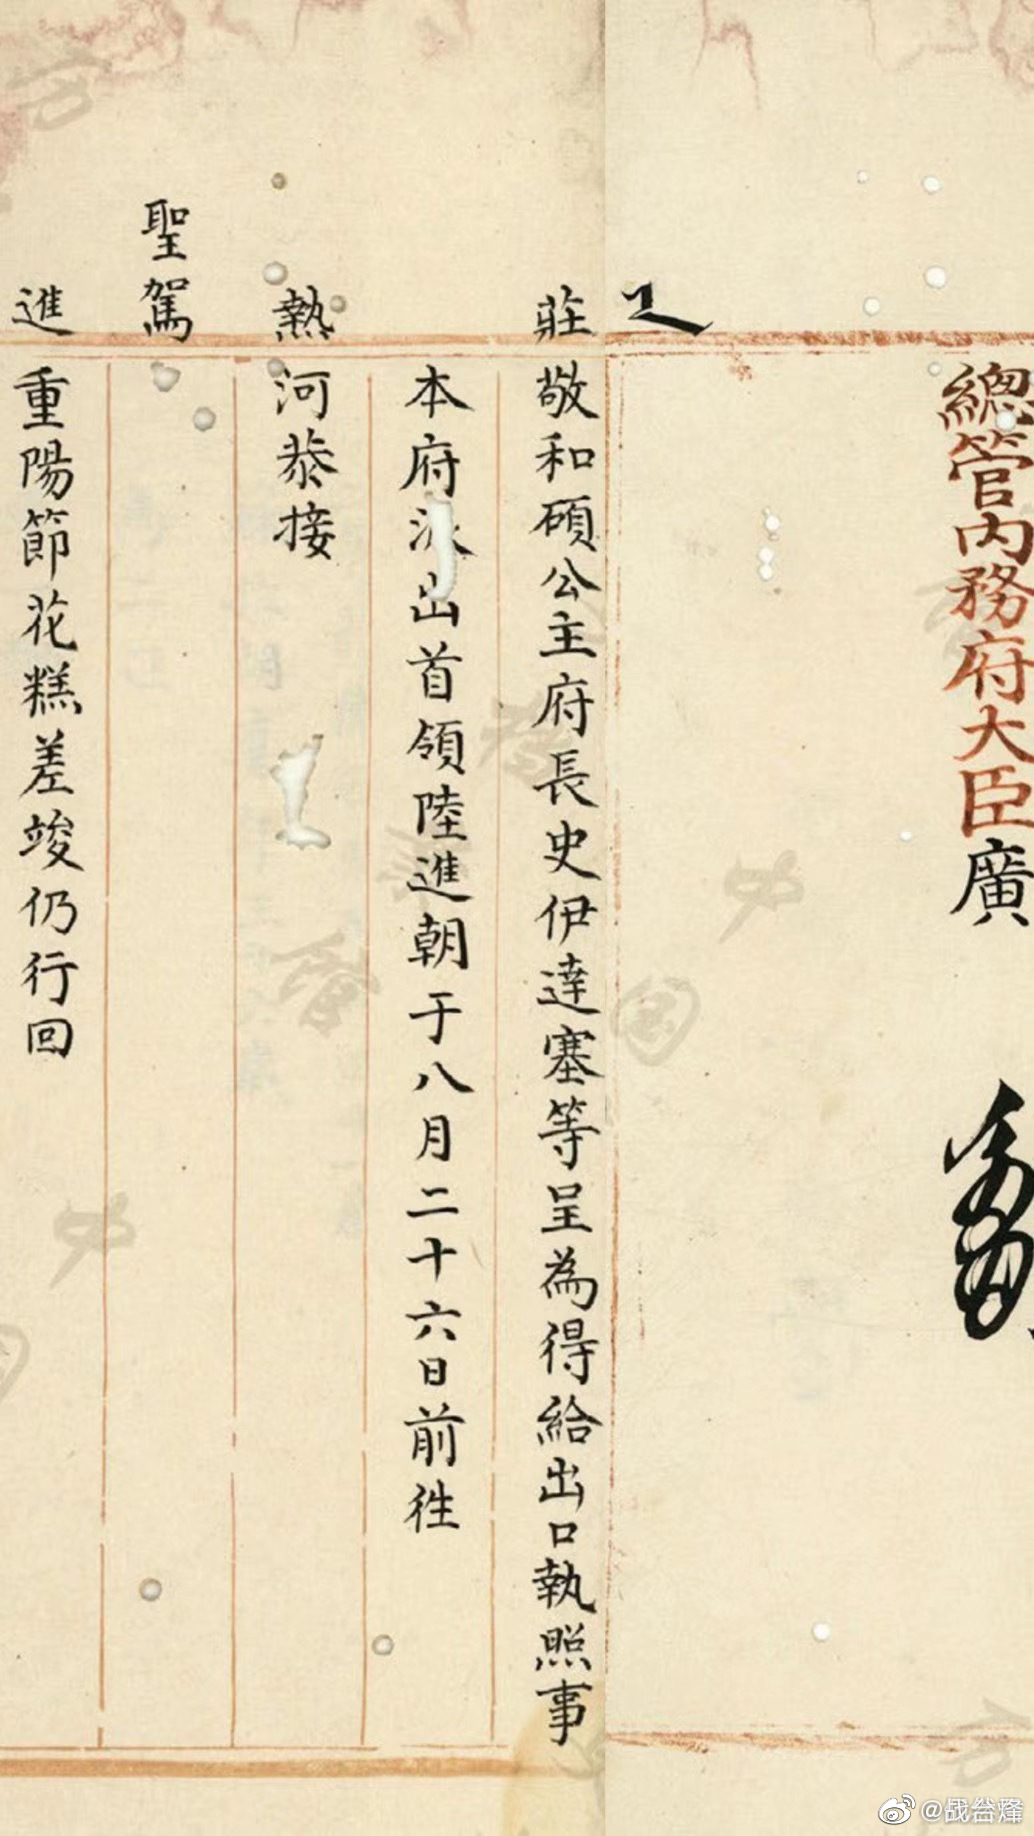 總管內務府大臣廣
莊敬和碩公主府長史伊達塞等呈為得給出口執照事
本府派出首領陸進朝于八月二十六日前往
熱河恭接
聖駕
進重陽節花糕差竣仍行回
@战台烽